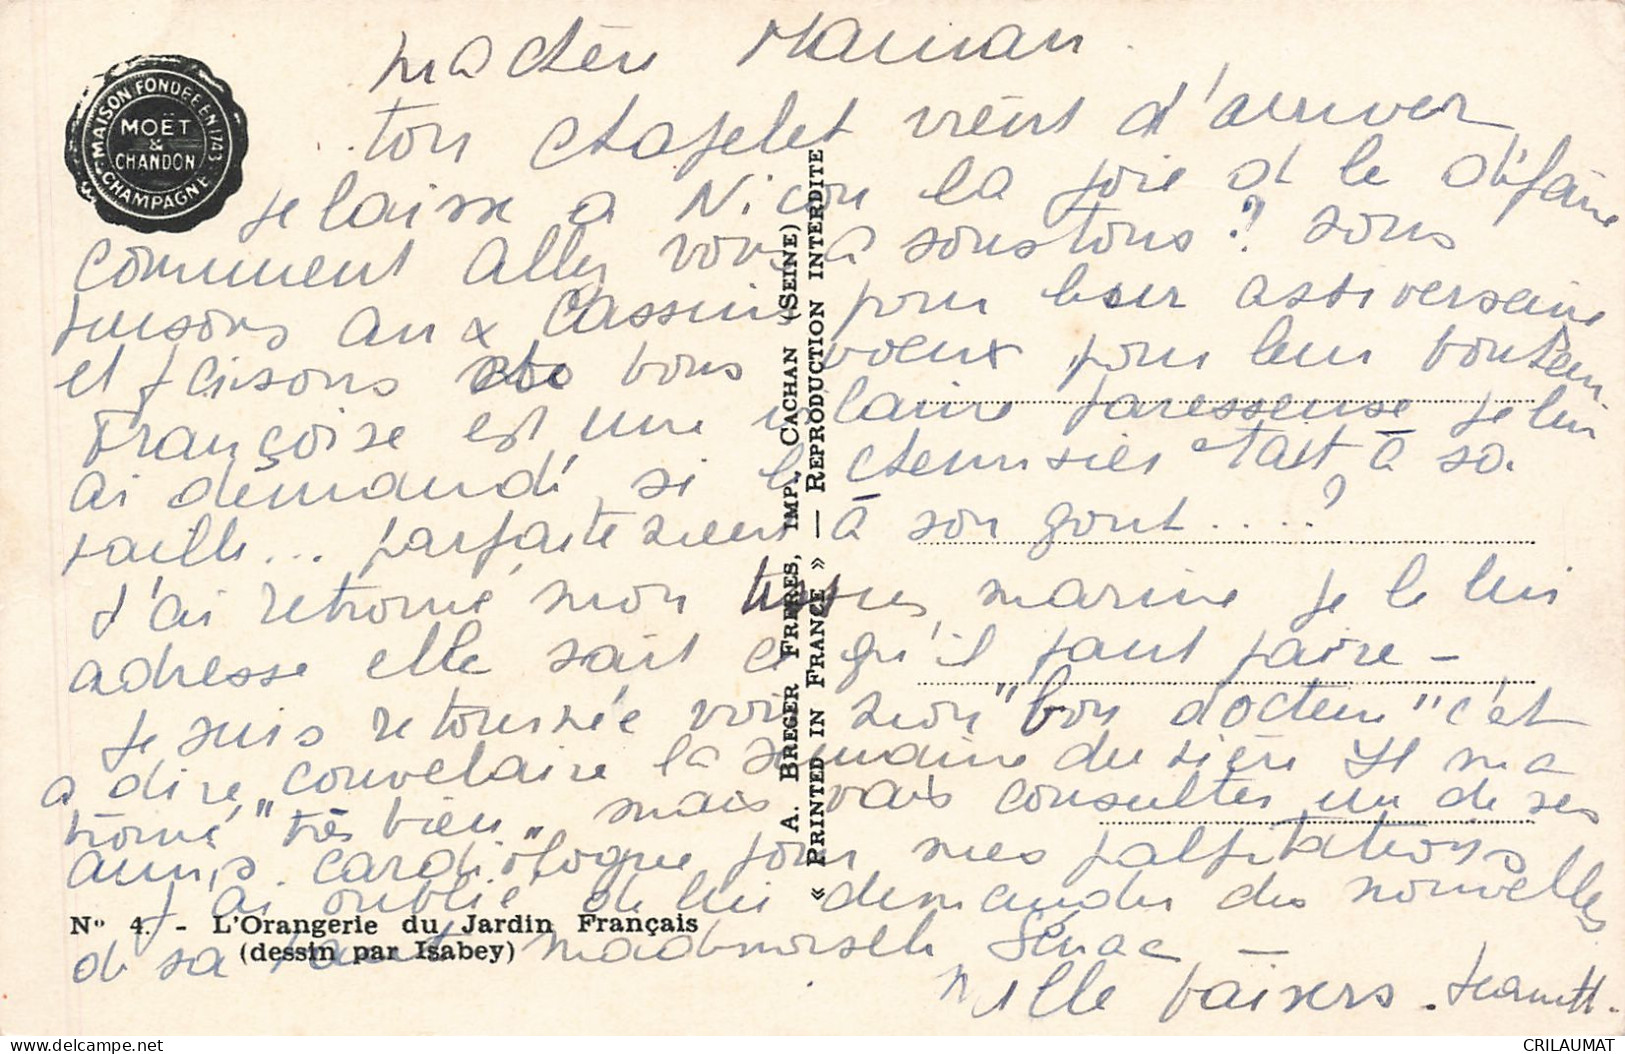 ma chère Maman.
MAISON FONDÉE EN 1743
MOËT
&
CHANDON
CHAMPAGNE
ton chapelet vient d'arriver
je laisse a Nicou la joie de le défaire
comment allez vous a soustons? nous
aux Cassin pour leur anniversaire
et faisons bons voeux pour leur bonheur
Françoise est une vilaine paresseuse je lui
ai demandé si le chemisier était à sa
taille... parfaitement à son gout.....?
J'ai retrouvé mon tissus marine je le lui
adresse elle sait ce qu'il faut faire -
Je suis retournée voir mon "bon docteur" c'est
a dire couvelaire la semaine dernière Il m'a
trouvé "très bien" mais vais consulter un de ses
amis cardiologue pour mes palpitations
J'ai oublié de lui demander des nouvelles
de sa tante mademoiselle Sénac -
Mille baisers. Jeannette.
N° 4. - L'Orangerie du Jardin Français
(dessin par Isabey)
A. BREGER FRÈRES, IMP., CACHAN (SEINE)
« PRINTED IN FRANCE » — REPRODUCTION INTERDITE
CRILAUMAT